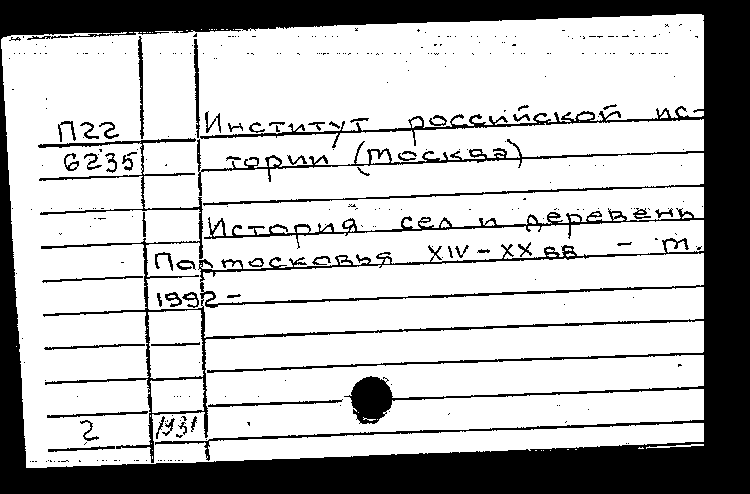 П22 Институт российской ис-
6235 тории (Москва)
История сел и деревень
Подмосковья XIV-XX вв. - М.
1992 -
2 1931